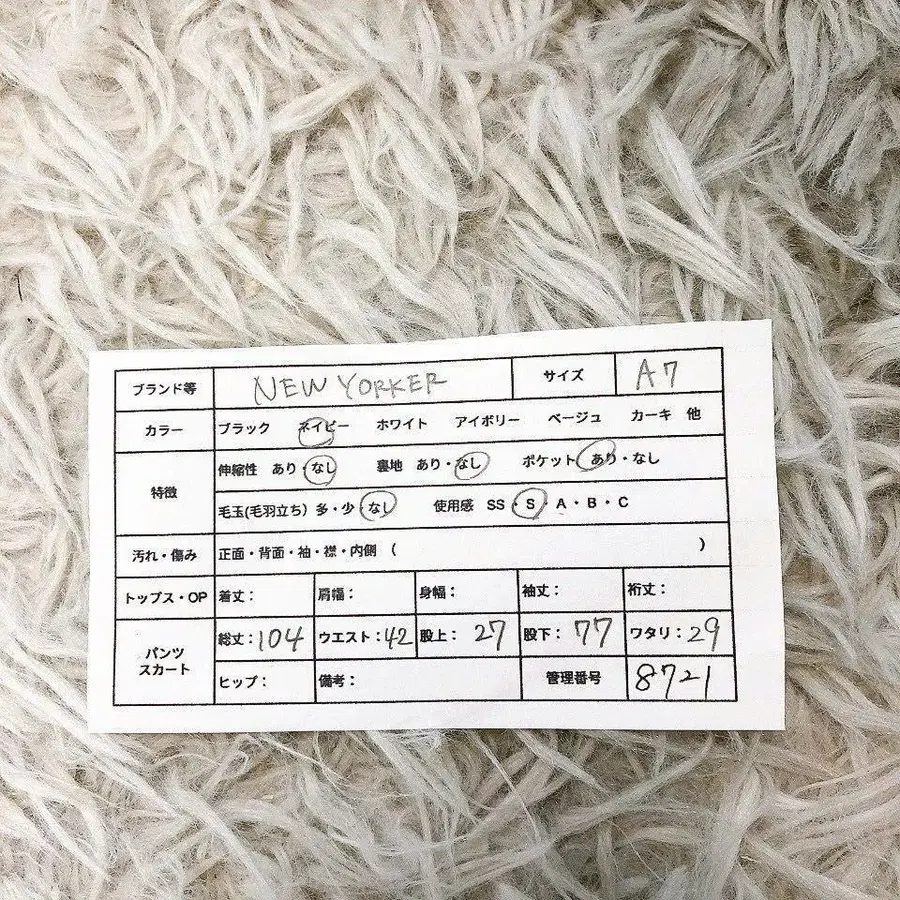 ブランド等 NEW YORKER サイズ A7
カラー ブラック ネイビー ホワイト アイボリー ベージュ カーキ 他
特徴
伸縮性 あり・なし 裏地 あり・なし ポケット あり・なし
毛玉(毛羽立ち) 多・少・なし 使用感 SS・S・A・B・C
汚れ・傷み 正面・背面・袖・襟・内側 ( )
トップス・OP 着丈: 肩幅: 身幅: 袖丈: 裄丈:
パンツ
スカート
総丈:104 ウエスト:42 股上:27 股下:77 ワタリ:29
ヒップ: 備考: 管理番号 8721